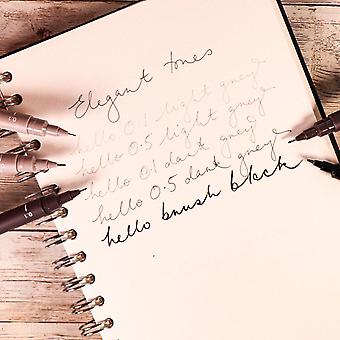 Elegant tones
hello 0.1 light grey
hello 0.5 light grey
hello 0.1 dark grey
hello 0.5 dark grey
hello brush black
0.1